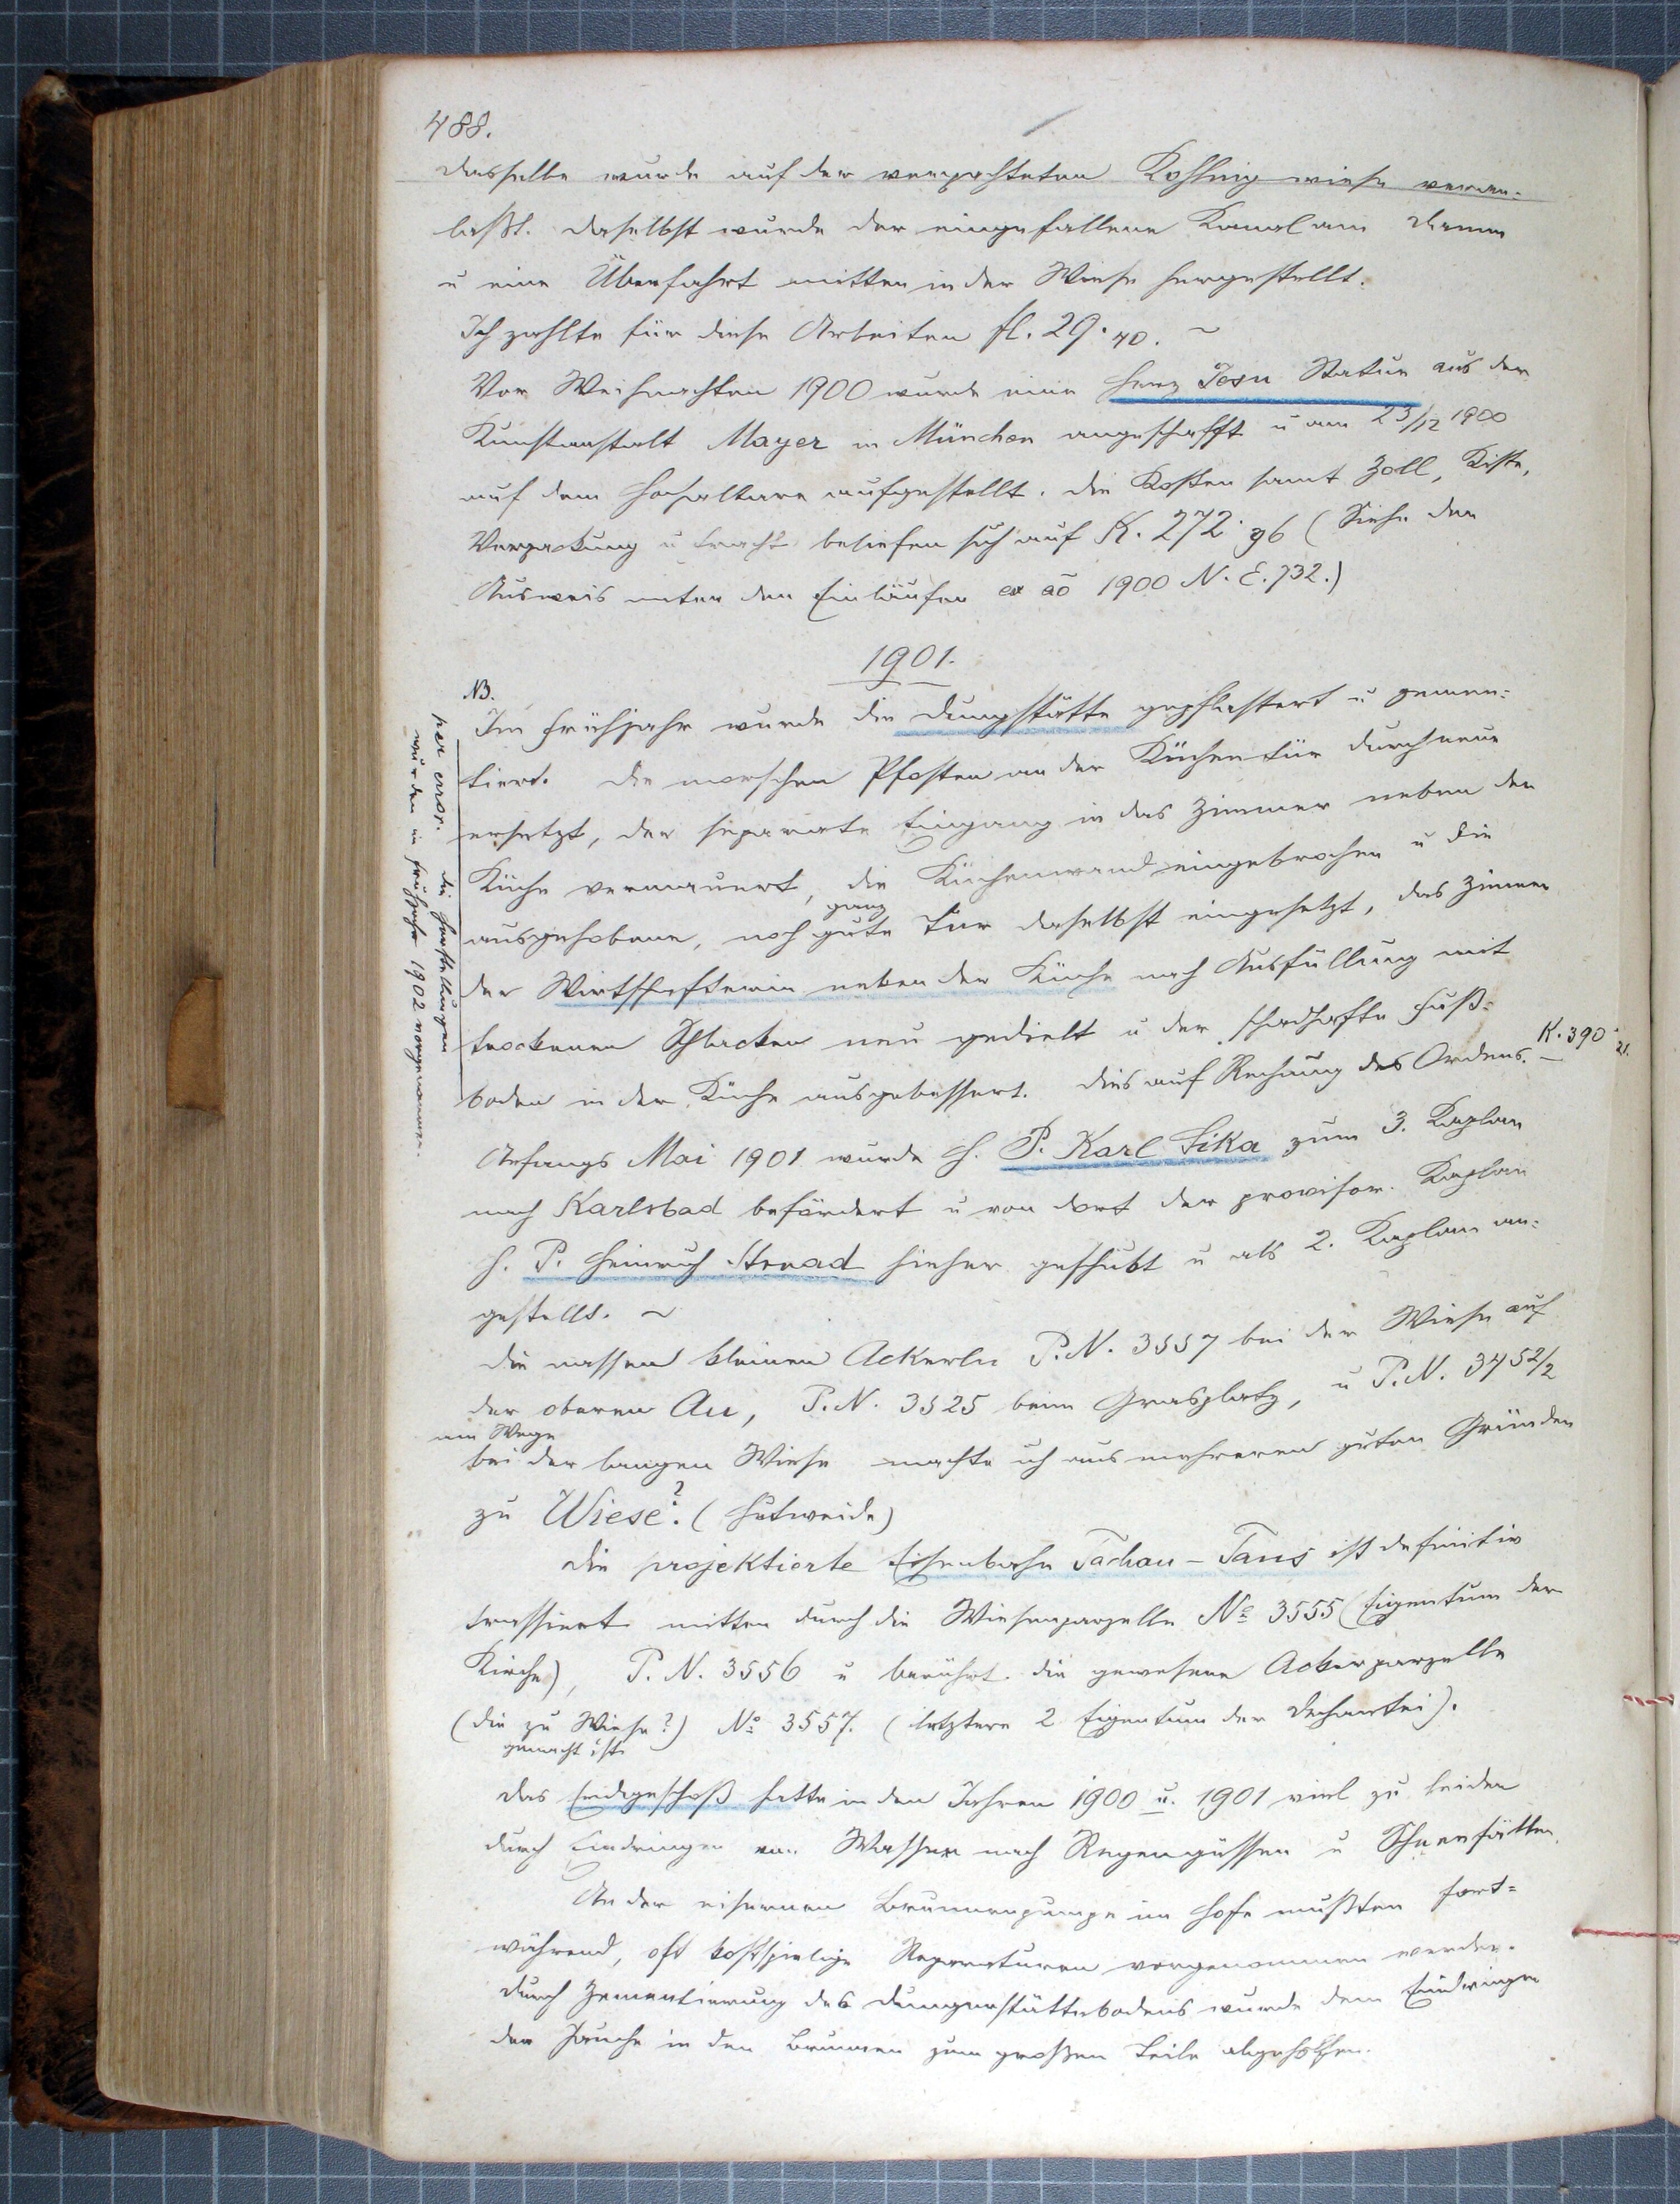 488.
dasselbe wurde auf der verpachteten Kohlingwiese veran-
laßt. Daselbst wurde der eingefallene Kanal am Damm
u eine Überfahrt mitten in der Wiese hergestellt.
Ich zahlte für diese Arbeiten fl. 29·40. ~
Vor Weihnachten 1900 wurde eine Herz Jesu Statue aus der
Kunstanstalt Mayer in München angeschafft u am 23/12 1900
auf dem Hochaltare aufgestellt. Die Kosten samt Zoll, Kiste,
Verpackung u Fracht beliefen sich auf K. 272·96 (Siehe den
Ausweis unter den Einläufen ex aō 1900 N. E. 732.)
1901.
NB.
Im Frühjahr wurde die Dungstätte gepflastert u zemen-
tiert. Die morschen Pfosten an der Küchentür durch neue
ersetzt, der separate Eingang in das Zimmer neben der
Küche vermauert, die Küchenwand eingebrochen u die
ausgehobene, noch ganz gute Tür daselbst eingesetzt, das Zimmer
der Wirtschafterin neben der Küche nach Ausfüllung mit
trockenen Schlacken neu gedielt u der schadhafte Fuß-
boden in der Küche ausgebessert. Dies auf Rechnung des Ordens. K. 390·21.
per error. die Herstellungen
wurden im Frühjahr 1902 vorgenommen.
Anfangs Mai 1901 wurde H. P. Karl Sika zum 3. Kaplan
nach Karlsbad befördert u von dort der provisor. Kaplan
H. P. Heinrich Strnad hieher geschickt u als 2. Kaplan an-
gestellt. ~
Die nassen kleinen Ackerln P.N. 3557 bei der Wiese auf
der oberen Au, P.N. 3525 beim Grasplatz, u P.N. 3452/2
am Wege
bei der langen Wiese machte ich aus mehreren guten Gründen
zu Wiese.? (Hutweide)
Die projektierte Eisenbahn Tachau - Taus ist definitiv
trassiert mitten durch die Wiesenparzelle No 3555 (Eigentum der
Kirche), P.N. 3556 u berührt die gewesene Ackerparzelle
(die zu Wiese? gemacht ist) No 3557. (letztere 2 Eigentum der Dechantei).
Das Erdgeschoß hatte in den Jahren 1900 u. 1901 viel zu leiden
durch Eindringen von Wasser nach Regengüssen u Schneefällen.
An der eisernen Brunnenpumpe im Hofe mußten fort-
während, oft kostspielige Reparaturen vorgenommen werden.
Durch Zementierung des Düngerstättebodens wurde dem Eindringen
der Jauche in den Brunnen zum großen Teile abgeholfen.